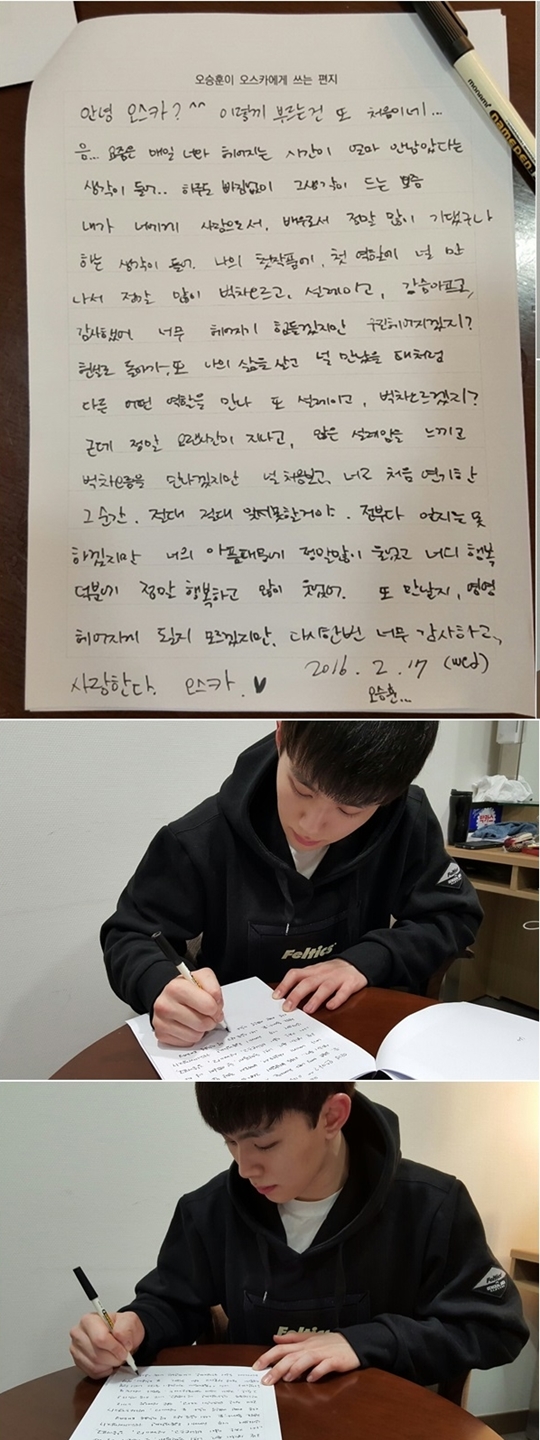 오승훈이 오스카에게 쓰는 편지
안녕 오스카? ^^ 이렇게 부르는건 또 처음이네...
음... 요즘은 매일 너와 헤어지는 시간이 얼마 안남았다는
생각이 들어.. 하루도 빠짐없이 그생각이 드는 요즘
내가 너에게 사람으로서, 배우로서 정말 많이 기댔구나
하는 생각이 들어. 나의 첫작품에, 첫 역할에 널 만
나서 정말 많이 벅차오르고, 설레이고, 가슴아프고,
감사했어 너무 헤어지기 힘들겠지만 우린헤어지겠지?
현실로 돌아가, 또 나의 삶을 살고 널 만났을 때처럼
다른 어떤 역할을 만나 또 설레이고, 벅차오르겠지?
근데 정말 오랜시간이 지나고, 많은 설레임을 느끼고
벅차오름을 만나겠지만 널 처음보고, 너로 처음 연기한
그 순간. 절대 절대 잊지못할거야. 전부다 얻지는 못
하겠지만 너의 아픔때문에 정말많이 울었고 너의 행복
덕분에 정말 행복하고 많이 웃었어. 또 만날지, 영영
헤어지게 될지 모르겠지만, 다시한번 너무 감사하고,
사랑한다. 오스카. ♥
2016. 2. 17 (wed)
오승훈...
monami namepen
Feltics
Feltics